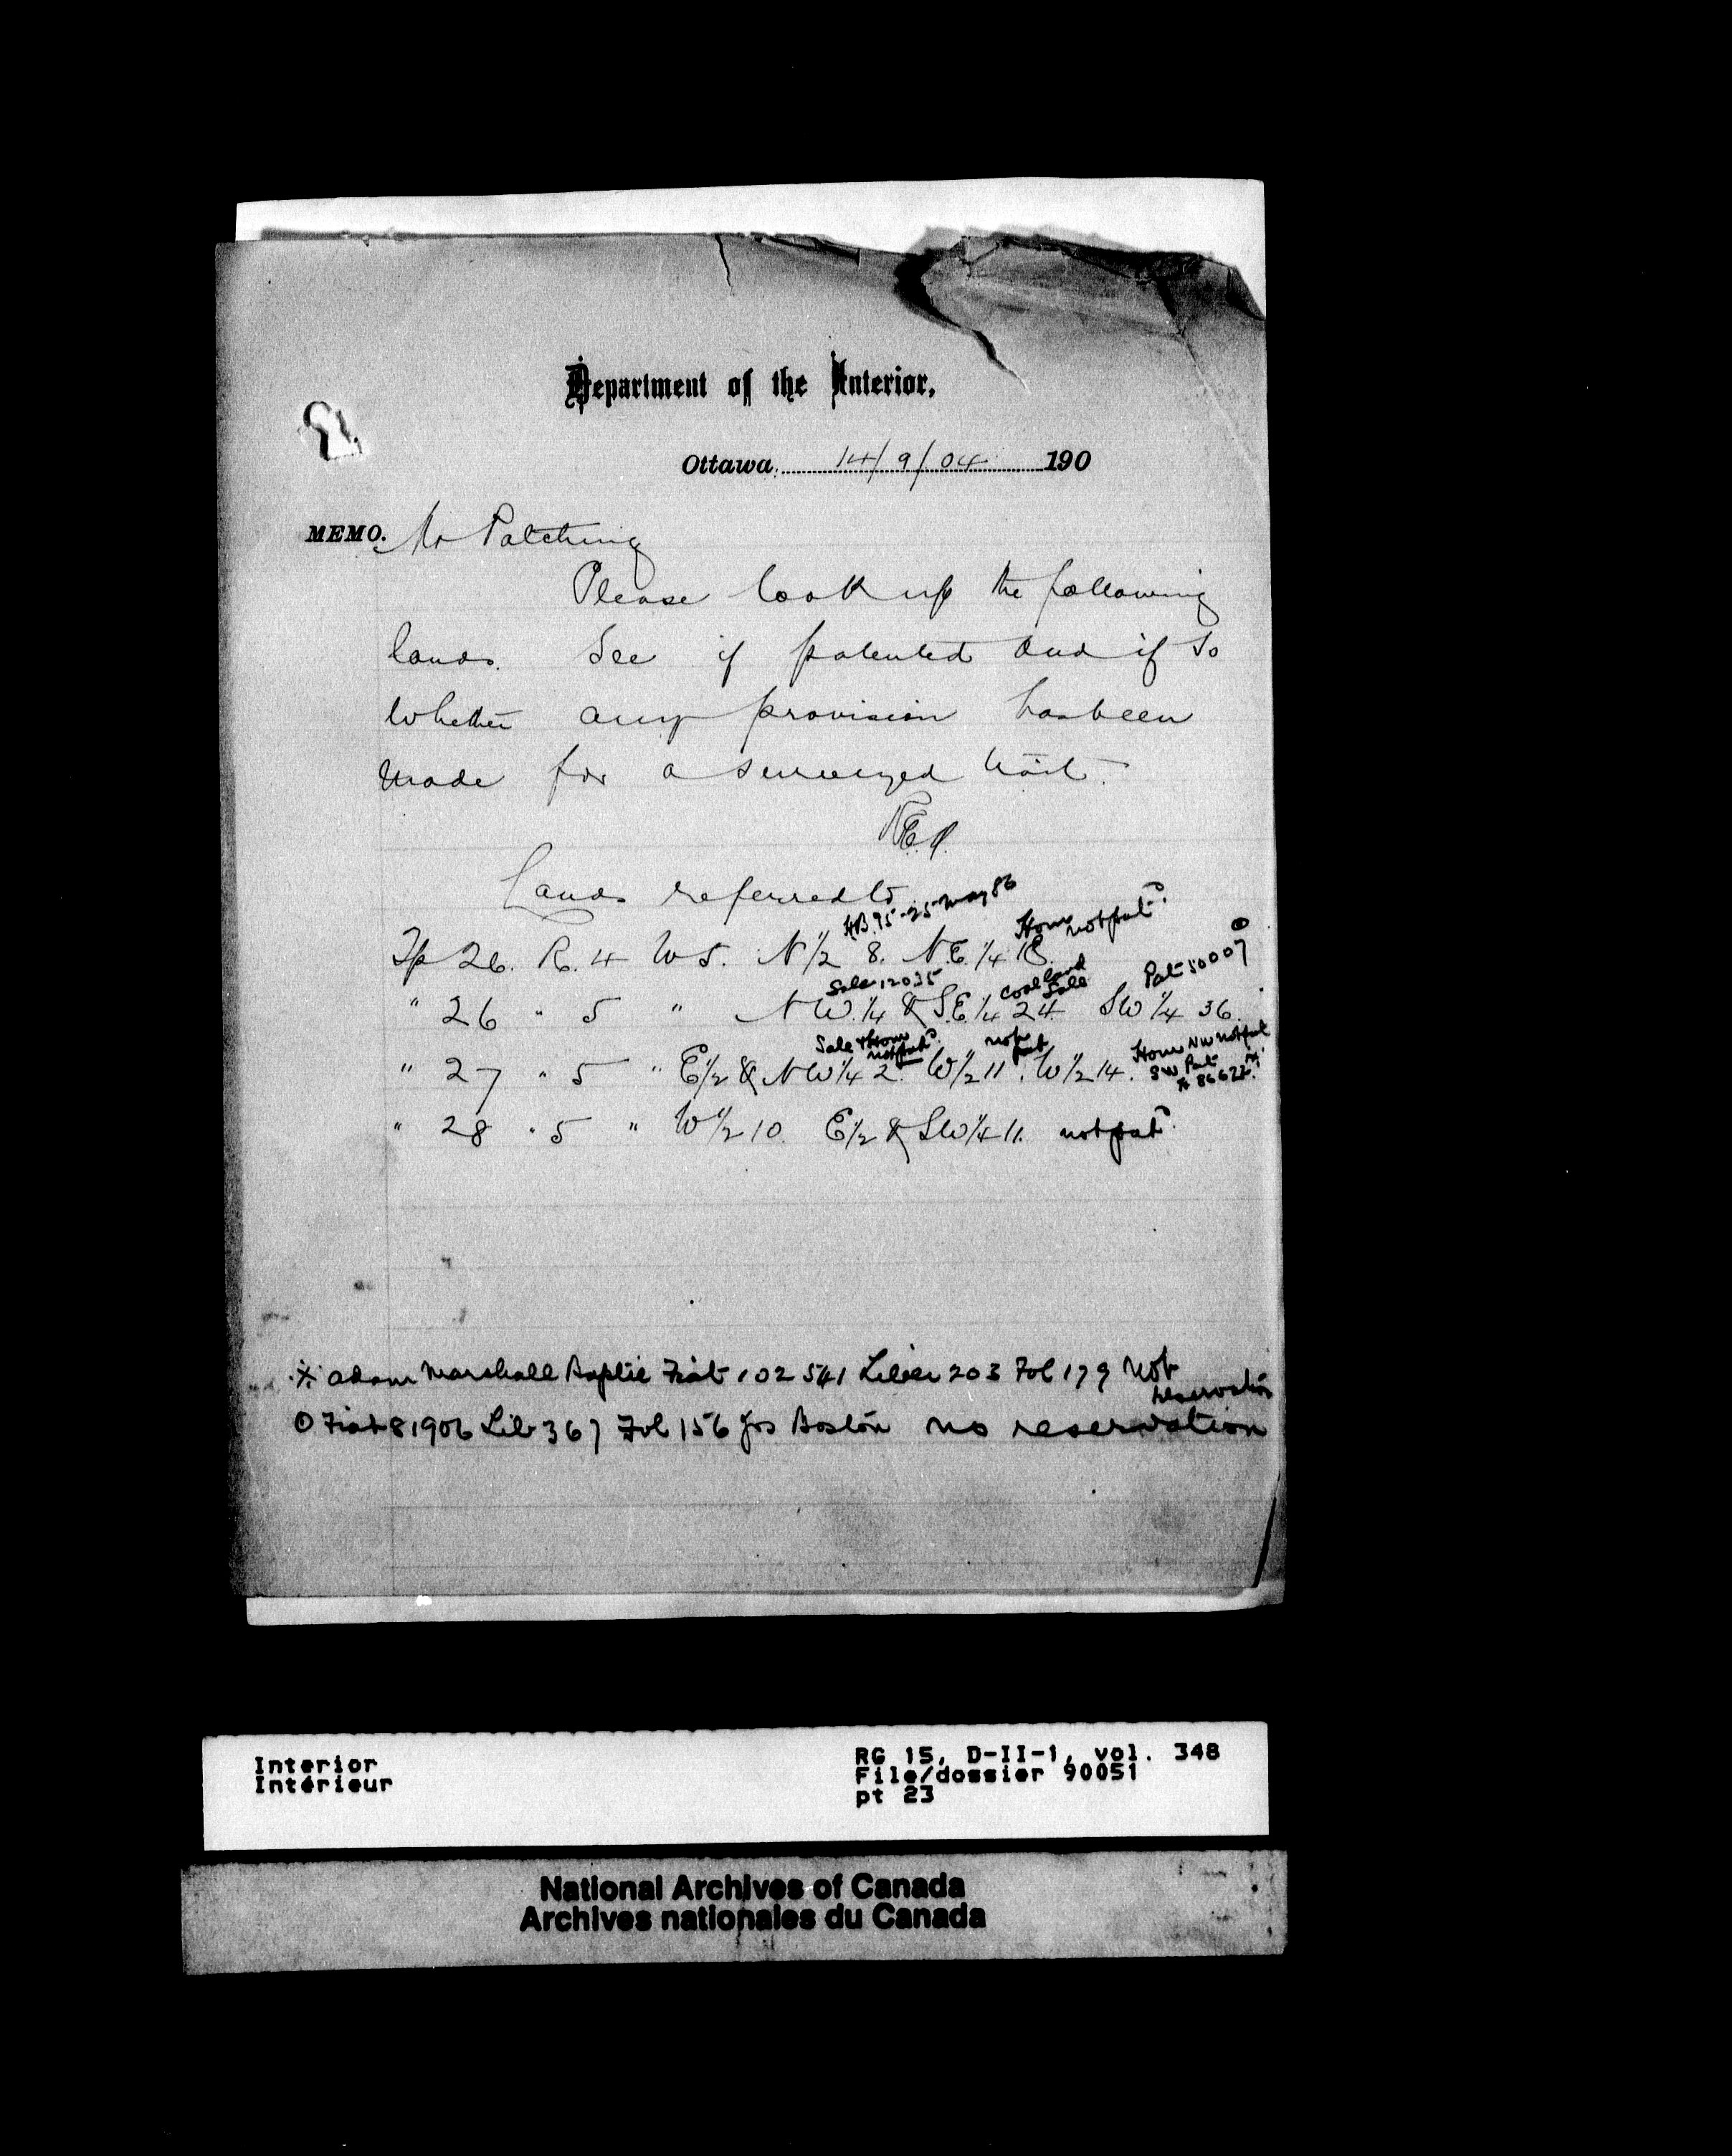 Department of the Interior,
Ottawa. 14/9/04 190
MEMO. Mr Patching
Please look up the following
lands. See if patented and if so
whether any provision has been
made for a surveyed trail.
Lands referred to
HB. 95-25-May 86
Home not patd.
Tp 26. R. 4 W5. N½ 8. N.E. ¼ 18.
Sale 12035
Coal land Sale
Pat 50007 ⊙
" 26 " 5 " NW.¼ & S.E.¼ 24 SW ¼ 36.
Sale & Home not patd.
not pat
Home NW not pat
SW Pat
86622
" 27 " 5 " E½ & NW¼ 2. W½ 11. W½ 14.
" 28 " 5 " W½ 10. E½ & SW¼ 11. not patd.
※ Adam Marshall Baptie Fiat 102541 Liber 203 Fol 179 Not
reservation
⊙ Fiat 81906 Lib 367 Fol 156 Jos Boston no reservation
Interior
Intérieur
RG 15, D-II-1, vol. 348
File/dossier 90051
pt 23
National Archives of Canada
Archives nationales du Canada